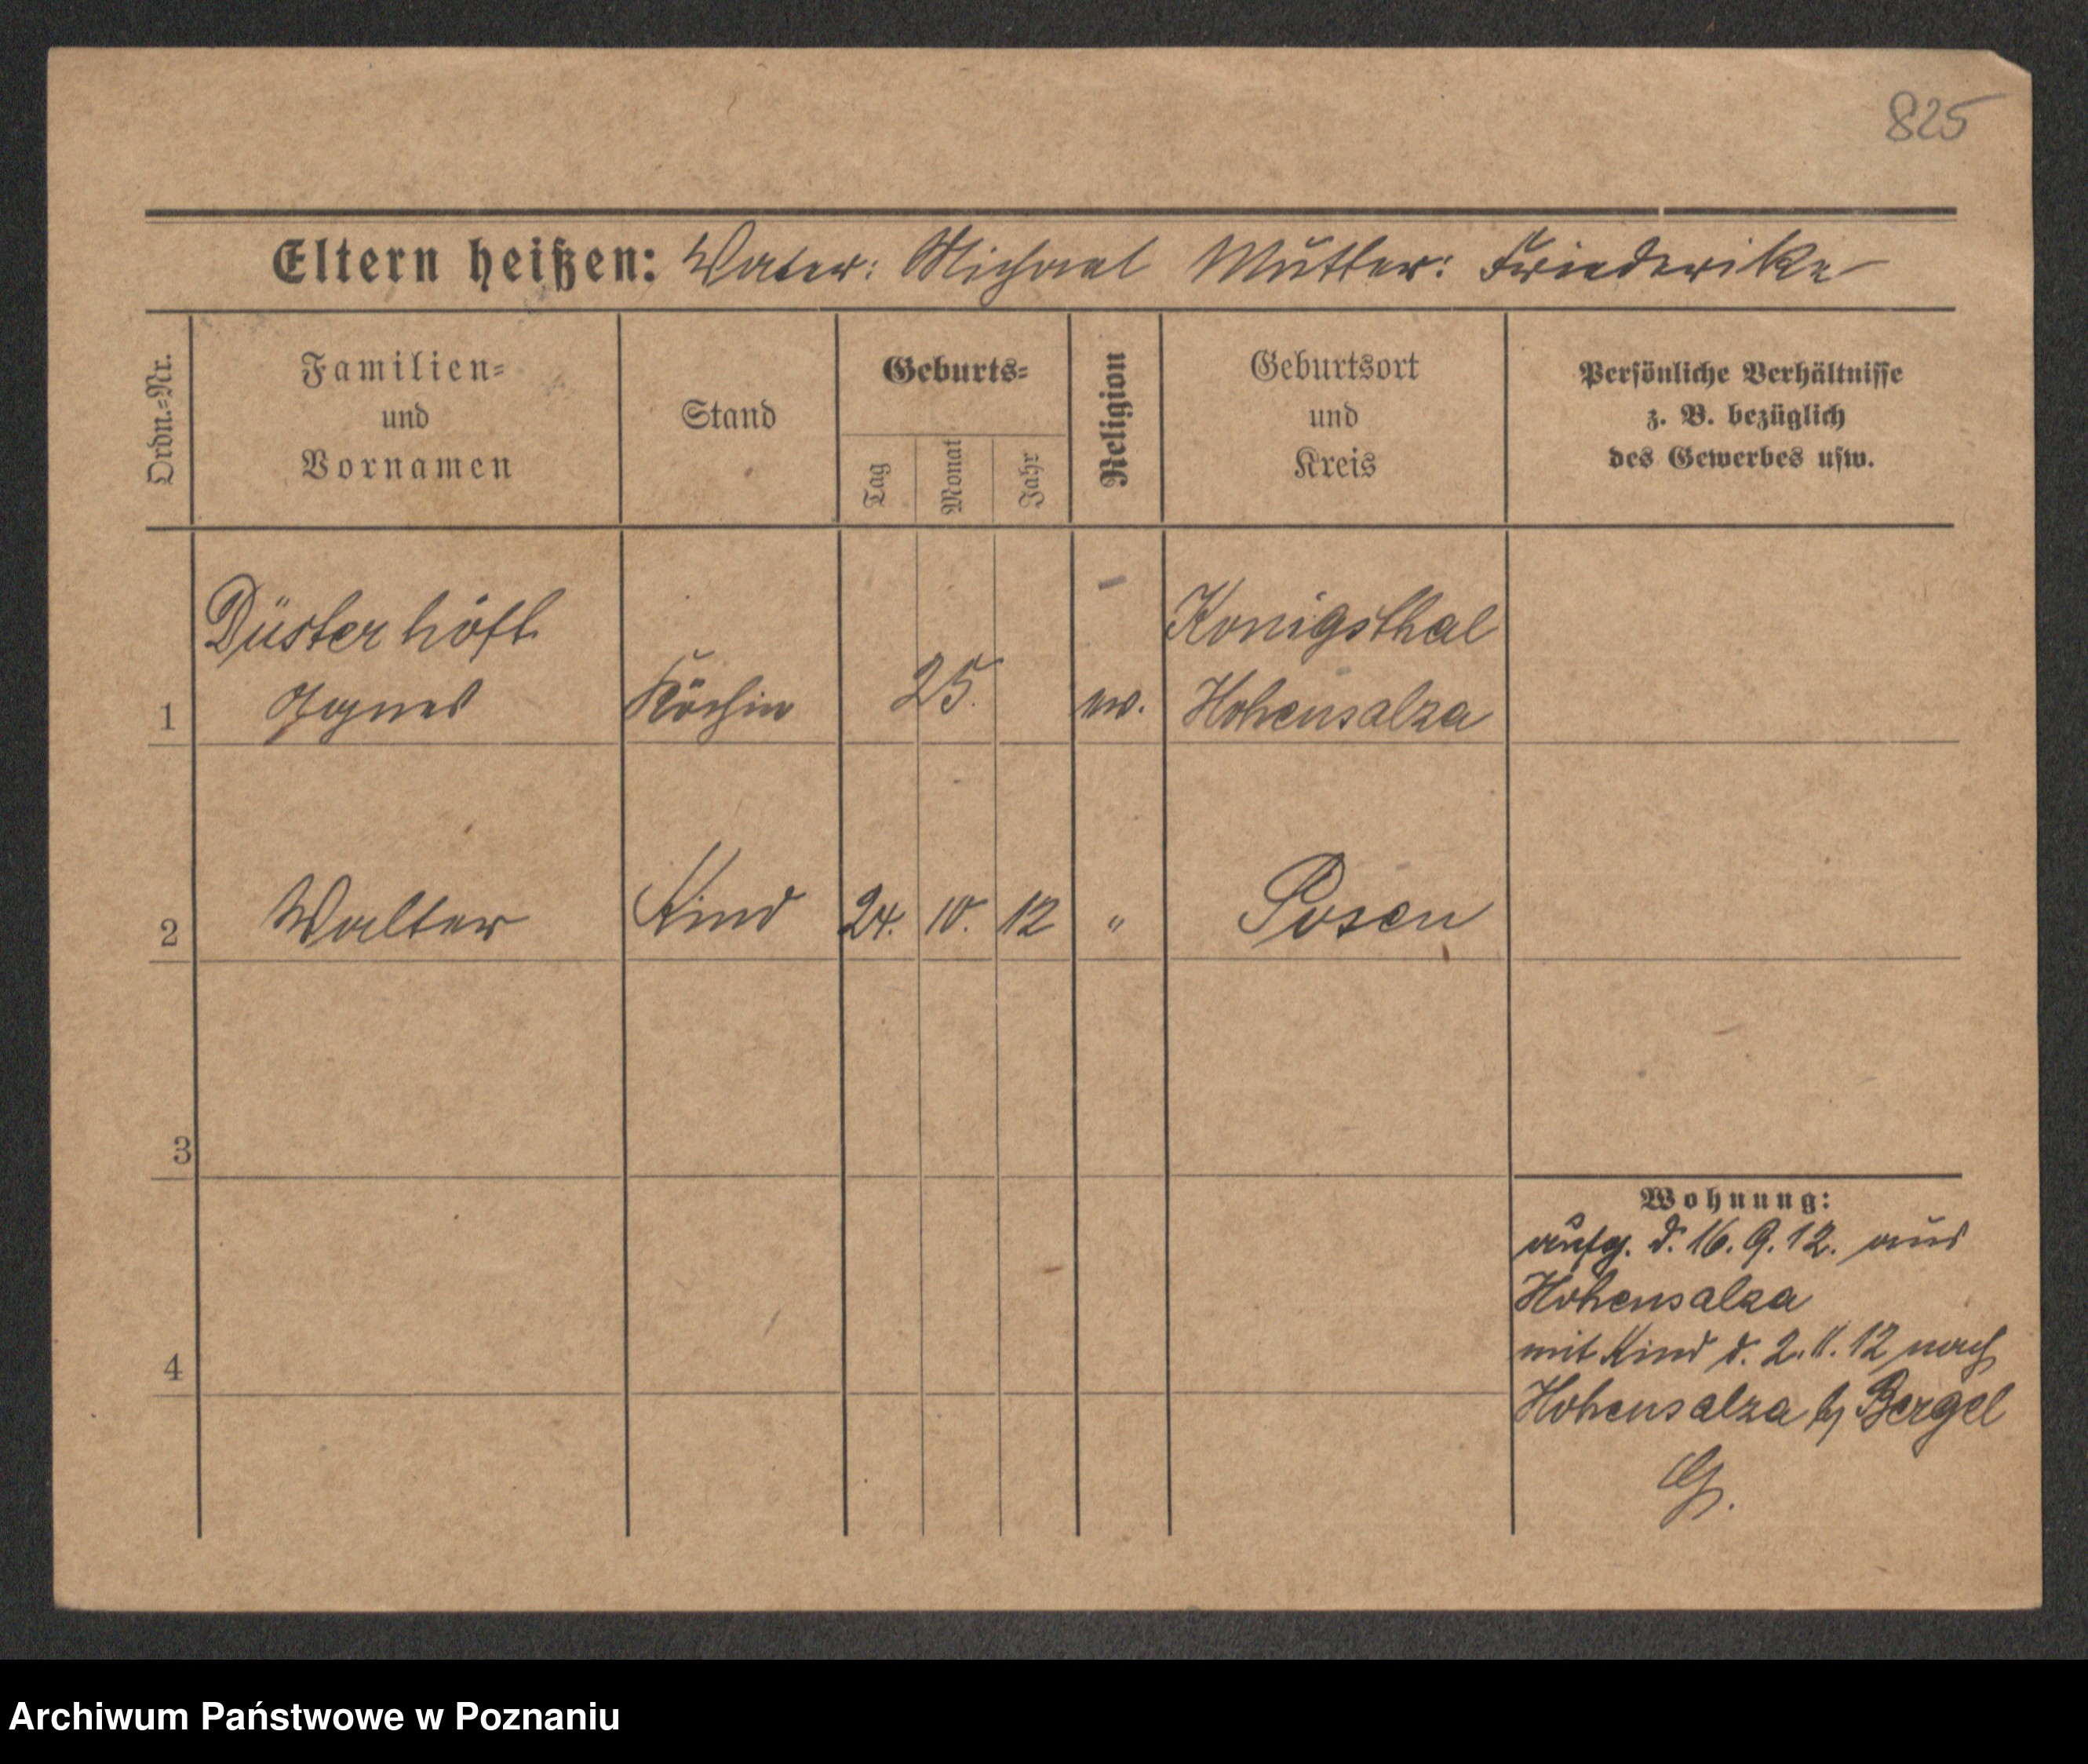 825
Eltern heißen: Vater: Michael Mutter: Friederike
Ordn.=Nr.
Familien=
und
Vornamen
Stand
Geburts=
Tag
Monat
Jahr
Religion
Geburtsort
und
Kreis
Persönliche Verhältnisse
z. B. bezüglich
des Gewerbes usw.
Düsterhöft Konigsthal
1 Agnes Köchin 25. ev. Hohensalza
2 Walter Kind 24. 10. 12 " Posen
3
4
Wohnung:
aufg. d. 16. 9. 12. aus
Hohensalza
mit Kind d. 2. 11. 12 nach
Hohensalza b/ Bergel
Archiwum Państwowe w Poznaniu